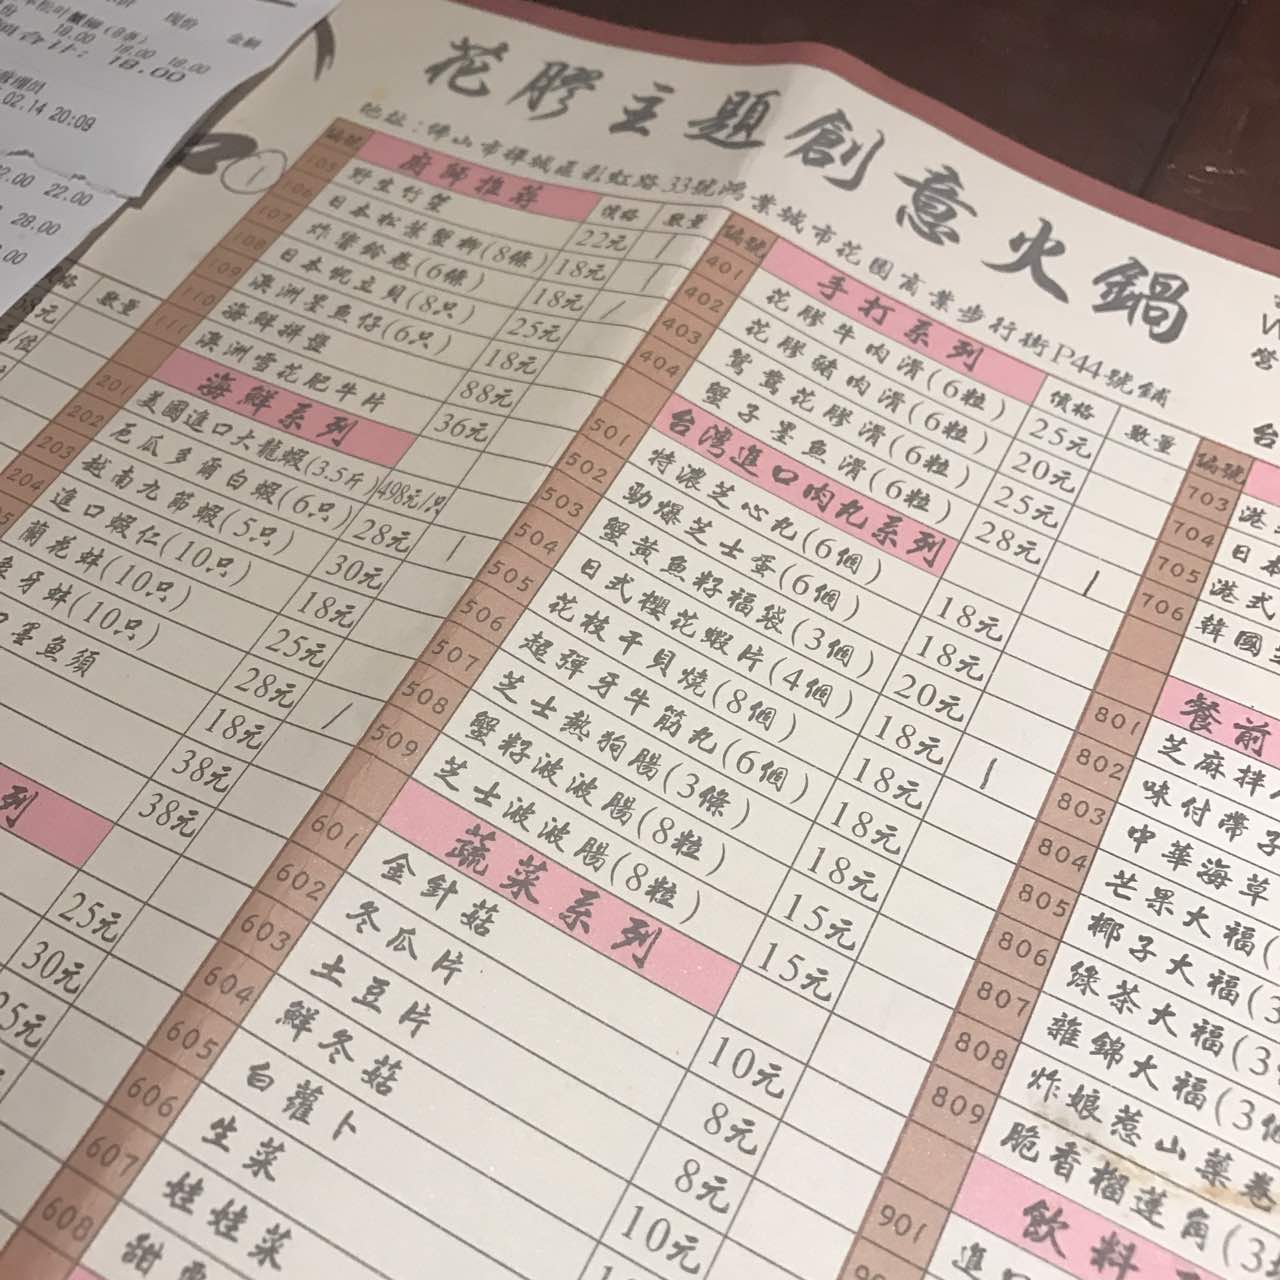 現价 金額
18.00 18.00 18.00
合计: 18.00
02.14 20:09
22.00
28.00
花膠主題創意火鍋
地址:佛山市禪城區彩虹路33號鴻業城市花園商業步行街P44號鋪
①
編號 廚師推薦 價格 數量
105 野生竹笙 22元 /
106 日本松葉蟹柳(8條) 18元 /
107 炸響鈴卷(6條) 18元 /
108 日本帆立貝(8只) 25元
109 澳洲墨魚仔(6只) 18元
110 海鮮拼盤 88元
111 澳洲雪花肥牛片 36元
海鮮系列
201 美國進口大龍蝦(3.5斤) 498元/只
202 厄瓜多爾白蝦(6只) 28元 /
203 越南九節蝦(5只) 30元
204 進口蝦仁(10只) 18元
蘭花蚌(10只) 25元
象牙蚌(10只) 28元 /
墨魚須 18元
38元
38元
數量
列
25元
30元
25元
編號 手打系列 價格 數量
401 花膠牛肉滑(6粒) 25元
402 花膠豬肉滑(6粒) 20元
403 鴛鴦花膠滑(6粒) 25元
404 蟹子墨魚滑(6粒) 28元 /
台灣進口肉丸系列
501 特濃芝心丸(6個) 18元
502 勁爆芝士蛋(6個) 18元
503 蟹黃魚籽福袋(3個) 20元
504 日式櫻花蝦片(4個) 18元 /
505 花枝干貝燒(8個) 18元
506 超彈牙牛筋丸(6個) 18元
507 芝士熱狗腸(3條) 18元
508 蟹籽波波腸(8粒) 15元
509 芝士波波腸(8粒) 15元
蔬菜系列
601 金針菇 10元
602 冬瓜片 8元
603 土豆片 8元
604 鮮冬菇 10元
605 白蘿卜
606 生菜
607 娃娃菜
608 甜
編號
703 港
704 日本
705 港式
706 韓國
餐前
801 芝麻拌
802 味付帶子
803 中華海草
804 芒果大福(
805 椰子大福(3
806 綠茶大福(3
807 雜錦大福(3個
808 炸娘惹山藥卷
809 脆香榴蓮角(3
飲料
901 進口